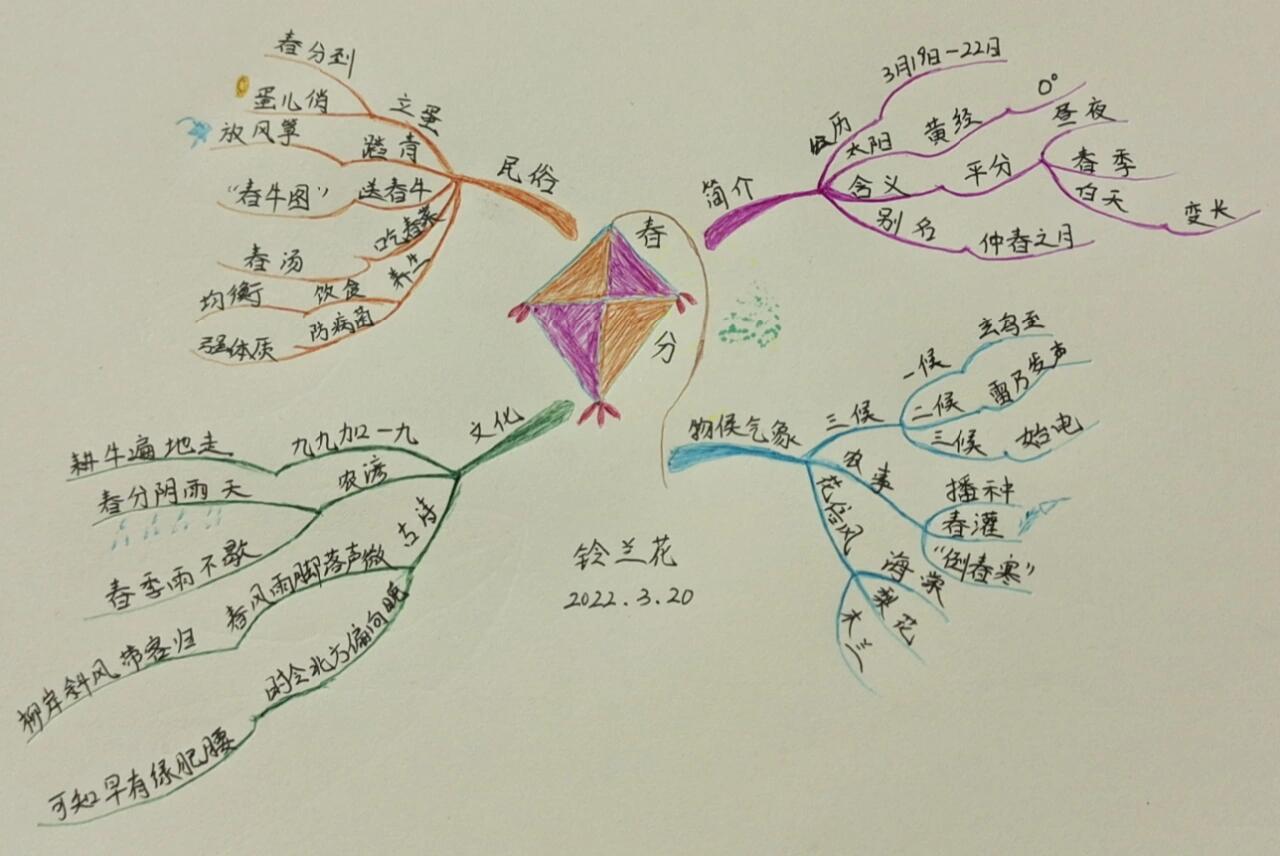 春
分
简介
公历
3月19日-22日
太阳
黄经
0°
含义
平分
昼夜
春季
白天
变长
别名
仲春之月
物候气象
三候
一候
玄鸟至
二候
雷乃发声
三候
始电
农事
播种
春灌
“倒春寒”
花信风
海棠
梨花
木兰
文化
九九加一九
耕牛遍地走
农谚
春分阴雨天
春季雨不歇
古诗
春风雨脚落声微
柳岸斜风带客归
时令北方偏向晚
可知早有绿肥腰
民俗
立蛋
春分到
蛋儿俏
踏青
放风筝
送春牛
“春牛图”
吃春菜
春汤
养生
饮食
均衡
防病菌
强体质
铃兰花
2022.3.20